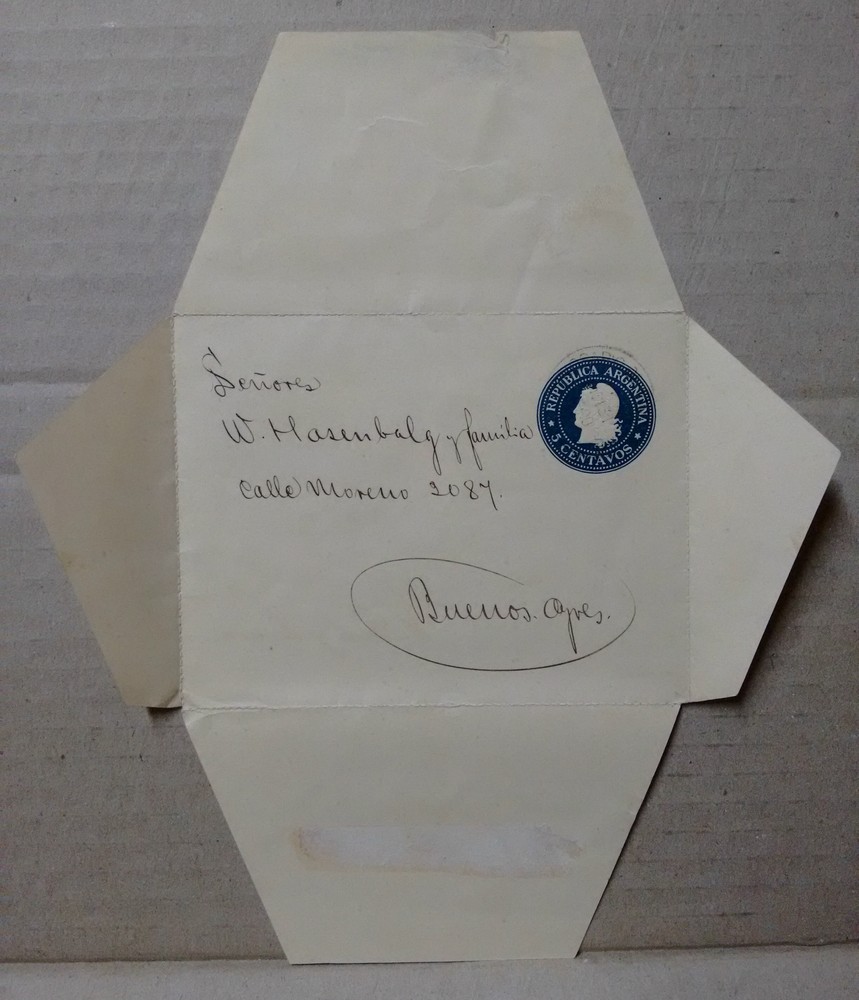 Señores
W. Hasenbalg y familia
Calle Moreno 2087.
Buenos. Ayres.
REPÚBLICA ARGENTINA
5 CENTAVOS